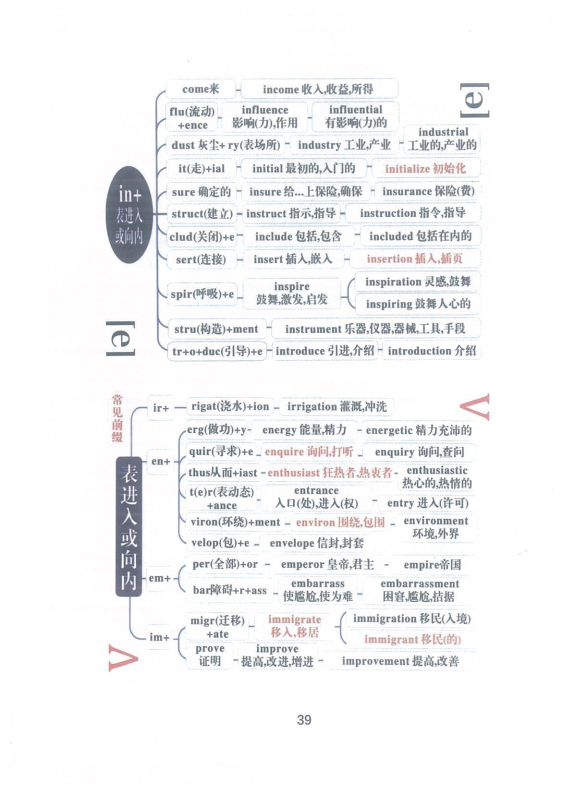 [e]
in+
表进入
或向内
come来 income 收入,收益,所得
flu(流动)
+ence
influence
影响(力),作用
influential
有影响(力)的
dust 灰尘+ry(表场所) industry 工业,产业 industrial
工业的,产业的
it(走)+ial initial 最初的,入门的 initialize 初始化
sure 确定的 insure 给...上保险,确保 insurance 保险(费)
struct(建立) instruct 指示,指导 instruction 指令,指导
clud(关闭)+e include 包括,包含 included 包括在内的
sert(连接) insert 插入,嵌入 insertion 插入,插页
spir(呼吸)+e inspire
鼓舞,激发,启发
inspiration 灵感,鼓舞
inspiring 鼓舞人心的
stru(构造)+ment instrument 乐器,仪器,器械,工具,手段
tr+o+duc(引导)+e introduce 引进,介绍 introduction 介绍
[e]
常见前缀
表进入或向内
V
ir+ rigat(浇水)+ion irrigation 灌溉,冲洗
en+
erg(做功)+y energy 能量,精力 energetic 精力充沛的
quir(寻求)+e enquire 询问,打听 enquiry 询问,查问
thus从而+iast enthusiast 狂热者,热衷者 enthusiastic
热心的,热情的
t(e)r(表动态)
+ance
entrance
入口(处),进入(权)
entry 进入(许可)
viron(环绕)+ment environ 围绕,包围 environment
环境,外界
velop(包)+e envelope 信封,封套
em+
per(全部)+or emperor 皇帝,君主 empire帝国
bar障碍+r+ass embarrass
使尴尬,使为难
embarrassment
困窘,尴尬,拮据
im+
migr(迁移)
+ate
immigrate
移入,移居
immigration 移民(入境)
immigrant 移民(的)
prove
证明
improve
提高,改进,增进
improvement 提高,改善
V
39